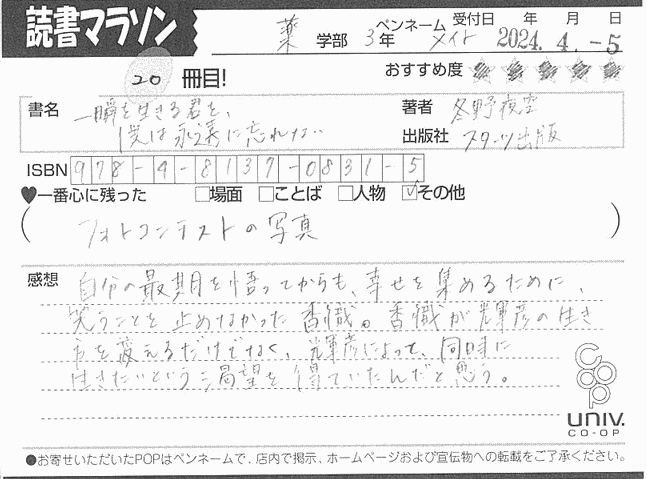 読書マラソン
薬 学部 3年 ペンネーム メイト 受付日 年 月 日 2024.4.-5
20 冊目! おすすめ度 ★★★★★
書名 一瞬を生きる君を、 著者 冬野夜空
僕は永遠に忘れない 出版社 スターツ出版
ISBN 978-4-8137-0831-5
♥一番心に残った □場面 □ことば □人物 ☑その他
(フォトコンテストの写真)
感想 自分の最期を悟ってからも、幸せを集めるために、
笑うことを止めなかった香織。香織が輝彦の生き
方を変えるだけでなく、輝彦によって、同時に
生きたいという渇望を得ていたんだと思う。
coop
UNIV.
CO-OP
●お寄せいただいたPOPはペンネームで、店内で掲示、ホームページおよび宣伝物への転載をご了承ください。